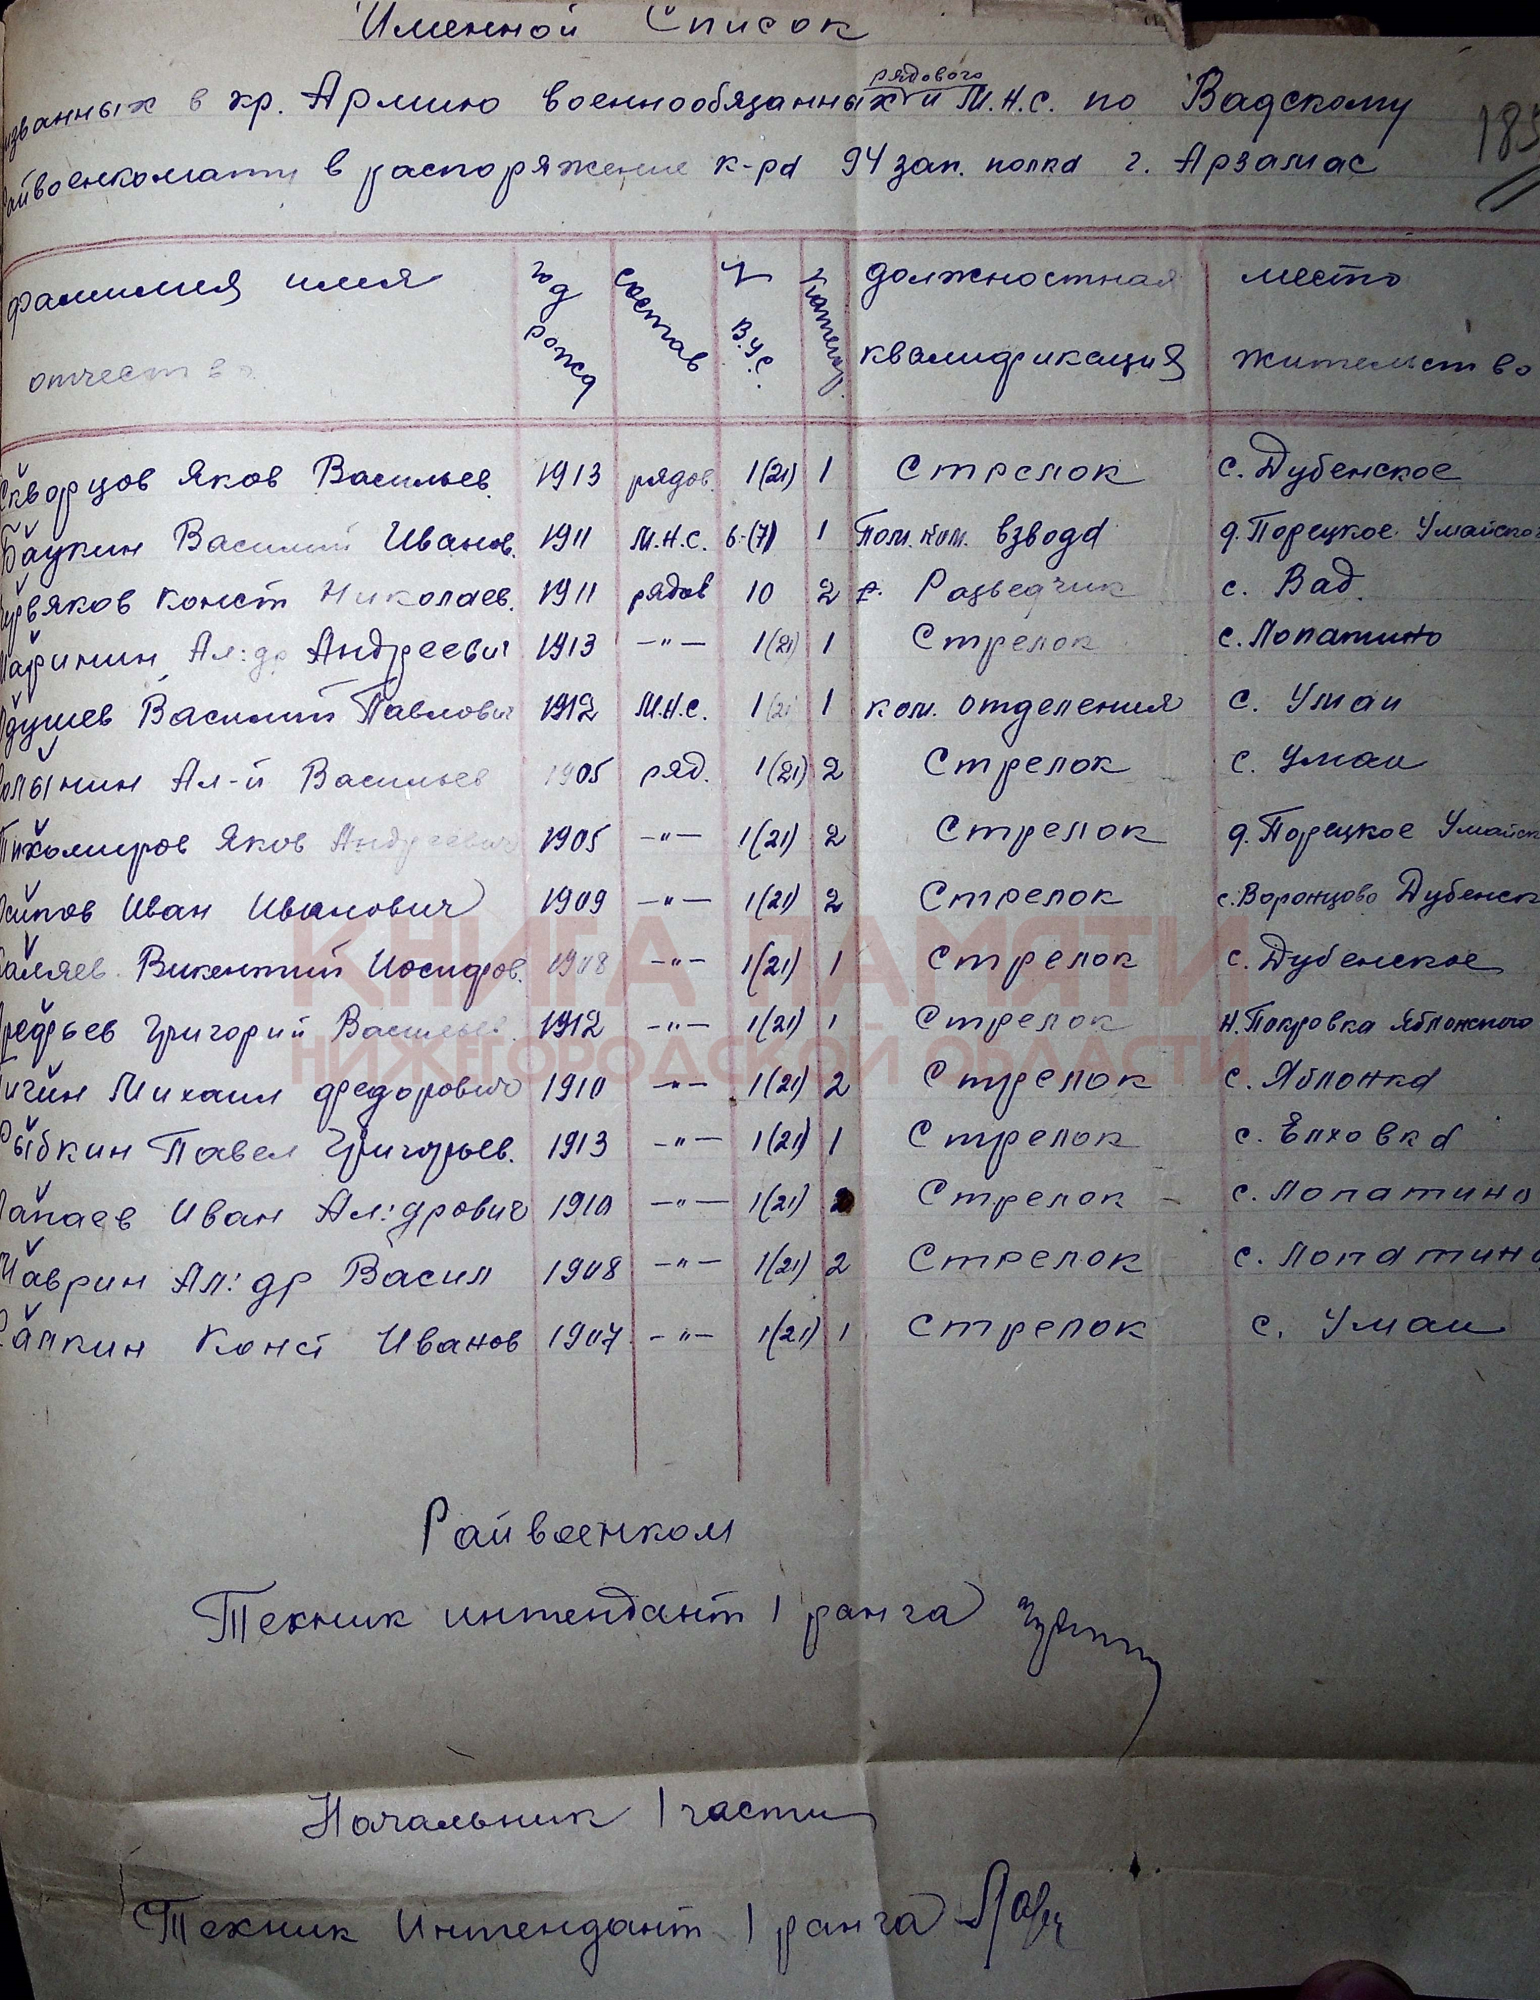 Именной Список
рядового
званных в кр. Армию военнообязанных и М.Н.С. по Вадскому
185
айвоенкомату в распоряжение к-ра 94 зап. полка г. Арзамас
фамилия имя год состав № Категор. должностная место
отчество рожд В.У.С. квалификация жительство
Скворцов Яков Васильев. 1913 рядов. 1(21) 1 Стрелок с. Дубенское
Баукин Василий Иванов. 1911 М.Н.С. 6-(7) 1 Пом. ком. взвода д. Порецкое Умайско
ервяков Конст Николаев. 1911 рядов 10 2 Разведчик с. Вад.
Ал:др Андреевич 1913 —"— 1(21) 1 Стрелок с. Лопатино
душев Василий Павлович 1912 М.Н.С. 1(21 1 ком. отделения с. Умаи
Ал-й Васильев 1905 ряд. 1(21) 2 Стрелок с. Умаи
Тихомиров Яков Андреевич 1905 —"— 1(21) 2 Стрелок д. Порецкое Умайск
осипов Иван Иванович 1909 —"— 1(21) 2 Стрелок с. Воронцово Дубенск
аляев Викентий Иосифов. 1908 —"— 1(21) 1 Стрелок с. Дубенское
КНИГА ПАМЯТИ
рефьев Григорий Васильев. 1912 —"— 1(21) 1 Стрелок Н. Покровка Яблонского
НИЖЕГОРОДСКОЙ ОБЛАСТИ
ичин Михаил Федорович 1910 —"— 1(21) 2 Стрелок с. Яблонка
Рыбкин Павел Григорьев. 1913 —"— 1(21) 1 Стрелок с. Елховка
апаев Иван Ал:дрович 1910 —"— 1(21) 2 Стрелок - с. Лопатино
аврин Ал:др Васил 1908 —"— 1(21) 2 Стрелок с. Лопатино
апкин Конст Иванов 1907 —"— 1(21) 1 Стрелок с. Умаи
Райвоенком
Техник интендант 1 ранга
Начальник 1 части
Техник Интендант 1 ранга